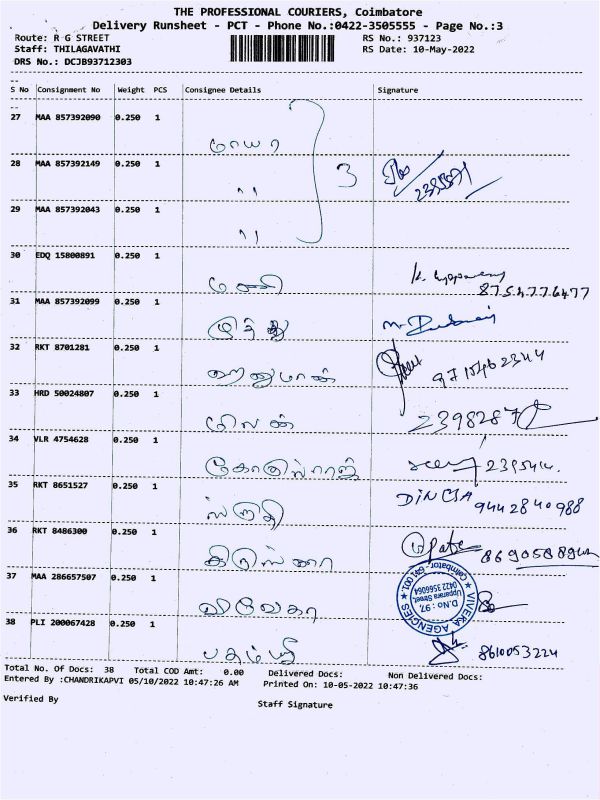 THE PROFESSIONAL COURIERS, Coimbatore
Delivery Runsheet - PCT - Phone No.:0422-3505555 - Page No.:3
Route: R G STREET RS No.: 937123
Staff: THILAGAVATHI RS Date: 10-May-2022
DRS No.: DCJB93712303
S No Consignment No Weight PCS Consignee Details Signature
27 MAA 857392090 0.250 1 மாயா
28 MAA 857392149 0.250 1 '' 3
29 MAA 857392043 0.250 1 ''
30 EDQ 15800891 0.250 1 மணி 8754776477
31 MAA 857392099 0.250 1 முத்து
32 RKT 8701281 0.250 1 ஹனுமான்
33 HRD 50024807 0.250 1 மிலன் 2398287
34 VLR 4754628 0.250 1
35 RKT 8651527 0.250 1 ஸ்ருதி 9442840988
36 RKT 8486300 0.250 1 கிருஸ்ணா
37 MAA 286657507 0.250 1 விவேகா
VIVEKA AGENCIES
D.NO: 97,
Upparara Street,
0422 3566064
Coimbatore - 641 001.
38 PLI 200067428 0.250 1 8610053224
Total No. Of Docs: 38 Total COD Amt: 0.00 Delivered Docs: Non Delivered Docs:
Entered By :CHANDRIKAPVI 05/10/2022 10:47:26 AM Printed On: 10-05-2022 10:47:36
Verified By Staff Signature